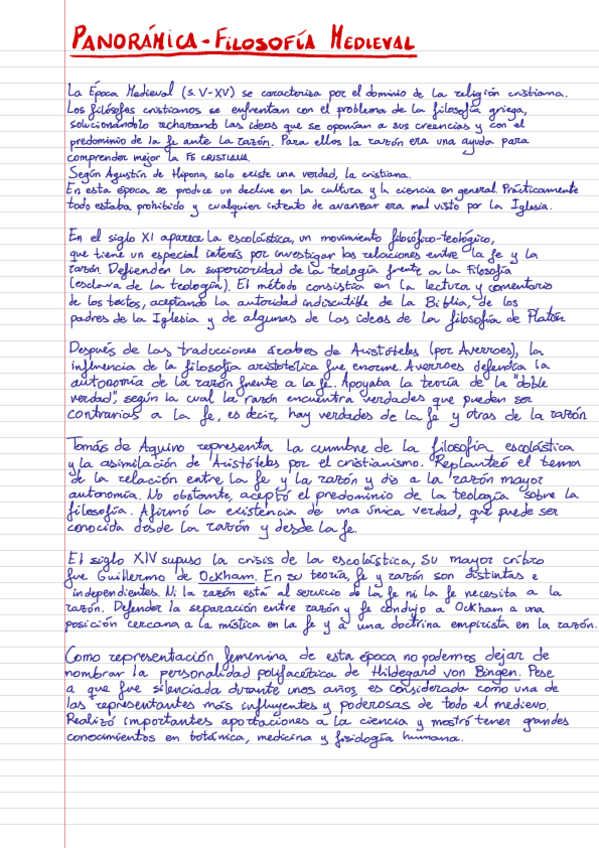 PANORÁMICA - FILOSOFÍA MEDIEVAL
La Época Medieval (s. V-XV) se caracteriza por el dominio de la religión cristiana.
Los filósofos cristianos se enfrentan con el problema de la filosofía griega,
solucionándolo rechazando las ideas que se oponían a sus creencias y con el
predominio de la fe ante la razón. Para ellos la razón era una ayuda para
comprender mejor la FE CRISTIANA.
Según Agustín de Hipona, solo existe una verdad, la cristiana.
En esta época se produce un declive en la cultura y la ciencia en general. Prácticamente
todo estaba prohibido y cualquier intento de avanzar era mal visto por la Iglesia.
En el siglo XI aparece la escolástica, un movimiento filosófico-teológico,
que tiene un especial interés por investigar las relaciones entre la fe y la
razón. Defienden la superioridad de la teología frente a la Filosofía
(esclava de la teología). El método consistía en la lectura y comentario
de los textos, aceptando la autoridad indiscutible de la Biblia, de los
padres de la Iglesia y de algunas de las ideas de la filosofía de Platón
Después de las traducciones árabes de Aristóteles (por Averroes), la
influencia de la filosofía aristotélica fue enorme. Averroes defendía la
autonomía de la razón frente a la fe. Apoyaba la teoría de la "doble
verdad", según la cual la razón encuentra verdades que pueden ser
contrarias a la fe, es decir, hay verdades de la fe y otras de la razón
Tomás de Aquino representa la cumbre de la filosofía escolástica
y la asimilación de Aristóteles por el cristianismo. Replanteó el tema
de la relación entre la fe y la razón y dio a la razón mayor
autonomía. No obstante, aceptó el predominio de la teología sobre la
filosofía. Afirmó la existencia de una única verdad, que puede ser
conocida desde la razón y desde la fe.
El siglo XIV supuso la crisis de la escolástica, su mayor crítico
fue Guillermo de Ockham. En su teoría, fe y razón son distintas e
independientes. Ni la razón está al servicio de la fe ni la fe necesita a la
razón. Defender la separación entre razón y fe condujo a Ockham a una
posición cercana a la mística en la fe y a una doctrina empirista en la razón.
Como representación femenina de esta época no podemos dejar de
nombrar la personalidad polifacética de Hildegard von Bingen. Pese
a que fue silenciada durante unos años es considerada como una de
las representantes más influyentes y poderosas de todo el medievo.
Realizó importantes aportaciones a la ciencia y mostró tener grandes
conocimientos en botánica, medicina y fisiología humana.